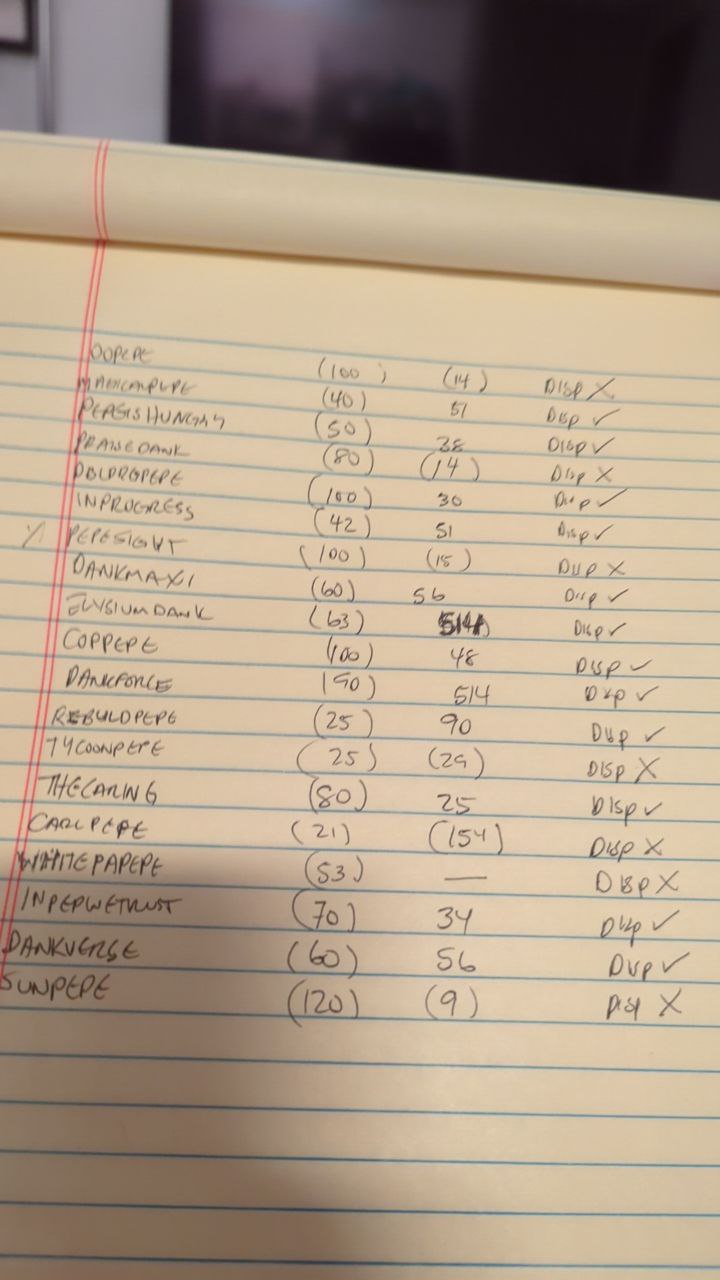 OOPEPE (100) (14) DISP X
MAGICALPEPE (40) 51 DISP ✓
PEPEISHUNGRY (50) 38 DISP ✓
PRAISEDANK (80) (14) DISP X
(100) 30 DISP ✓
INPROGRESS (42) 51 DISP ✓
PEPESIGHT (100) (15) DISP X
DANKMAXI (60) 56 DISP ✓
ELYSIUMDANK (63) DISP ✓
COPPEPE (100) 48 DISP ✓
DANKFORCE (90) 514 DISP ✓
REBUILDPEPE (25) 90 DISP ✓
TYCOONPEPE (25) (29) DISP X
THECARING (80) 25 DISP ✓
CARLPEPE (21) (154) DISP X
WHITEPAPEPE (53) — DISP X
INPEPWETRUST (70) 34 DISP ✓
DANKVERSE (60) 56 DISP ✓
SUNPEPE (120) (9) DISP X